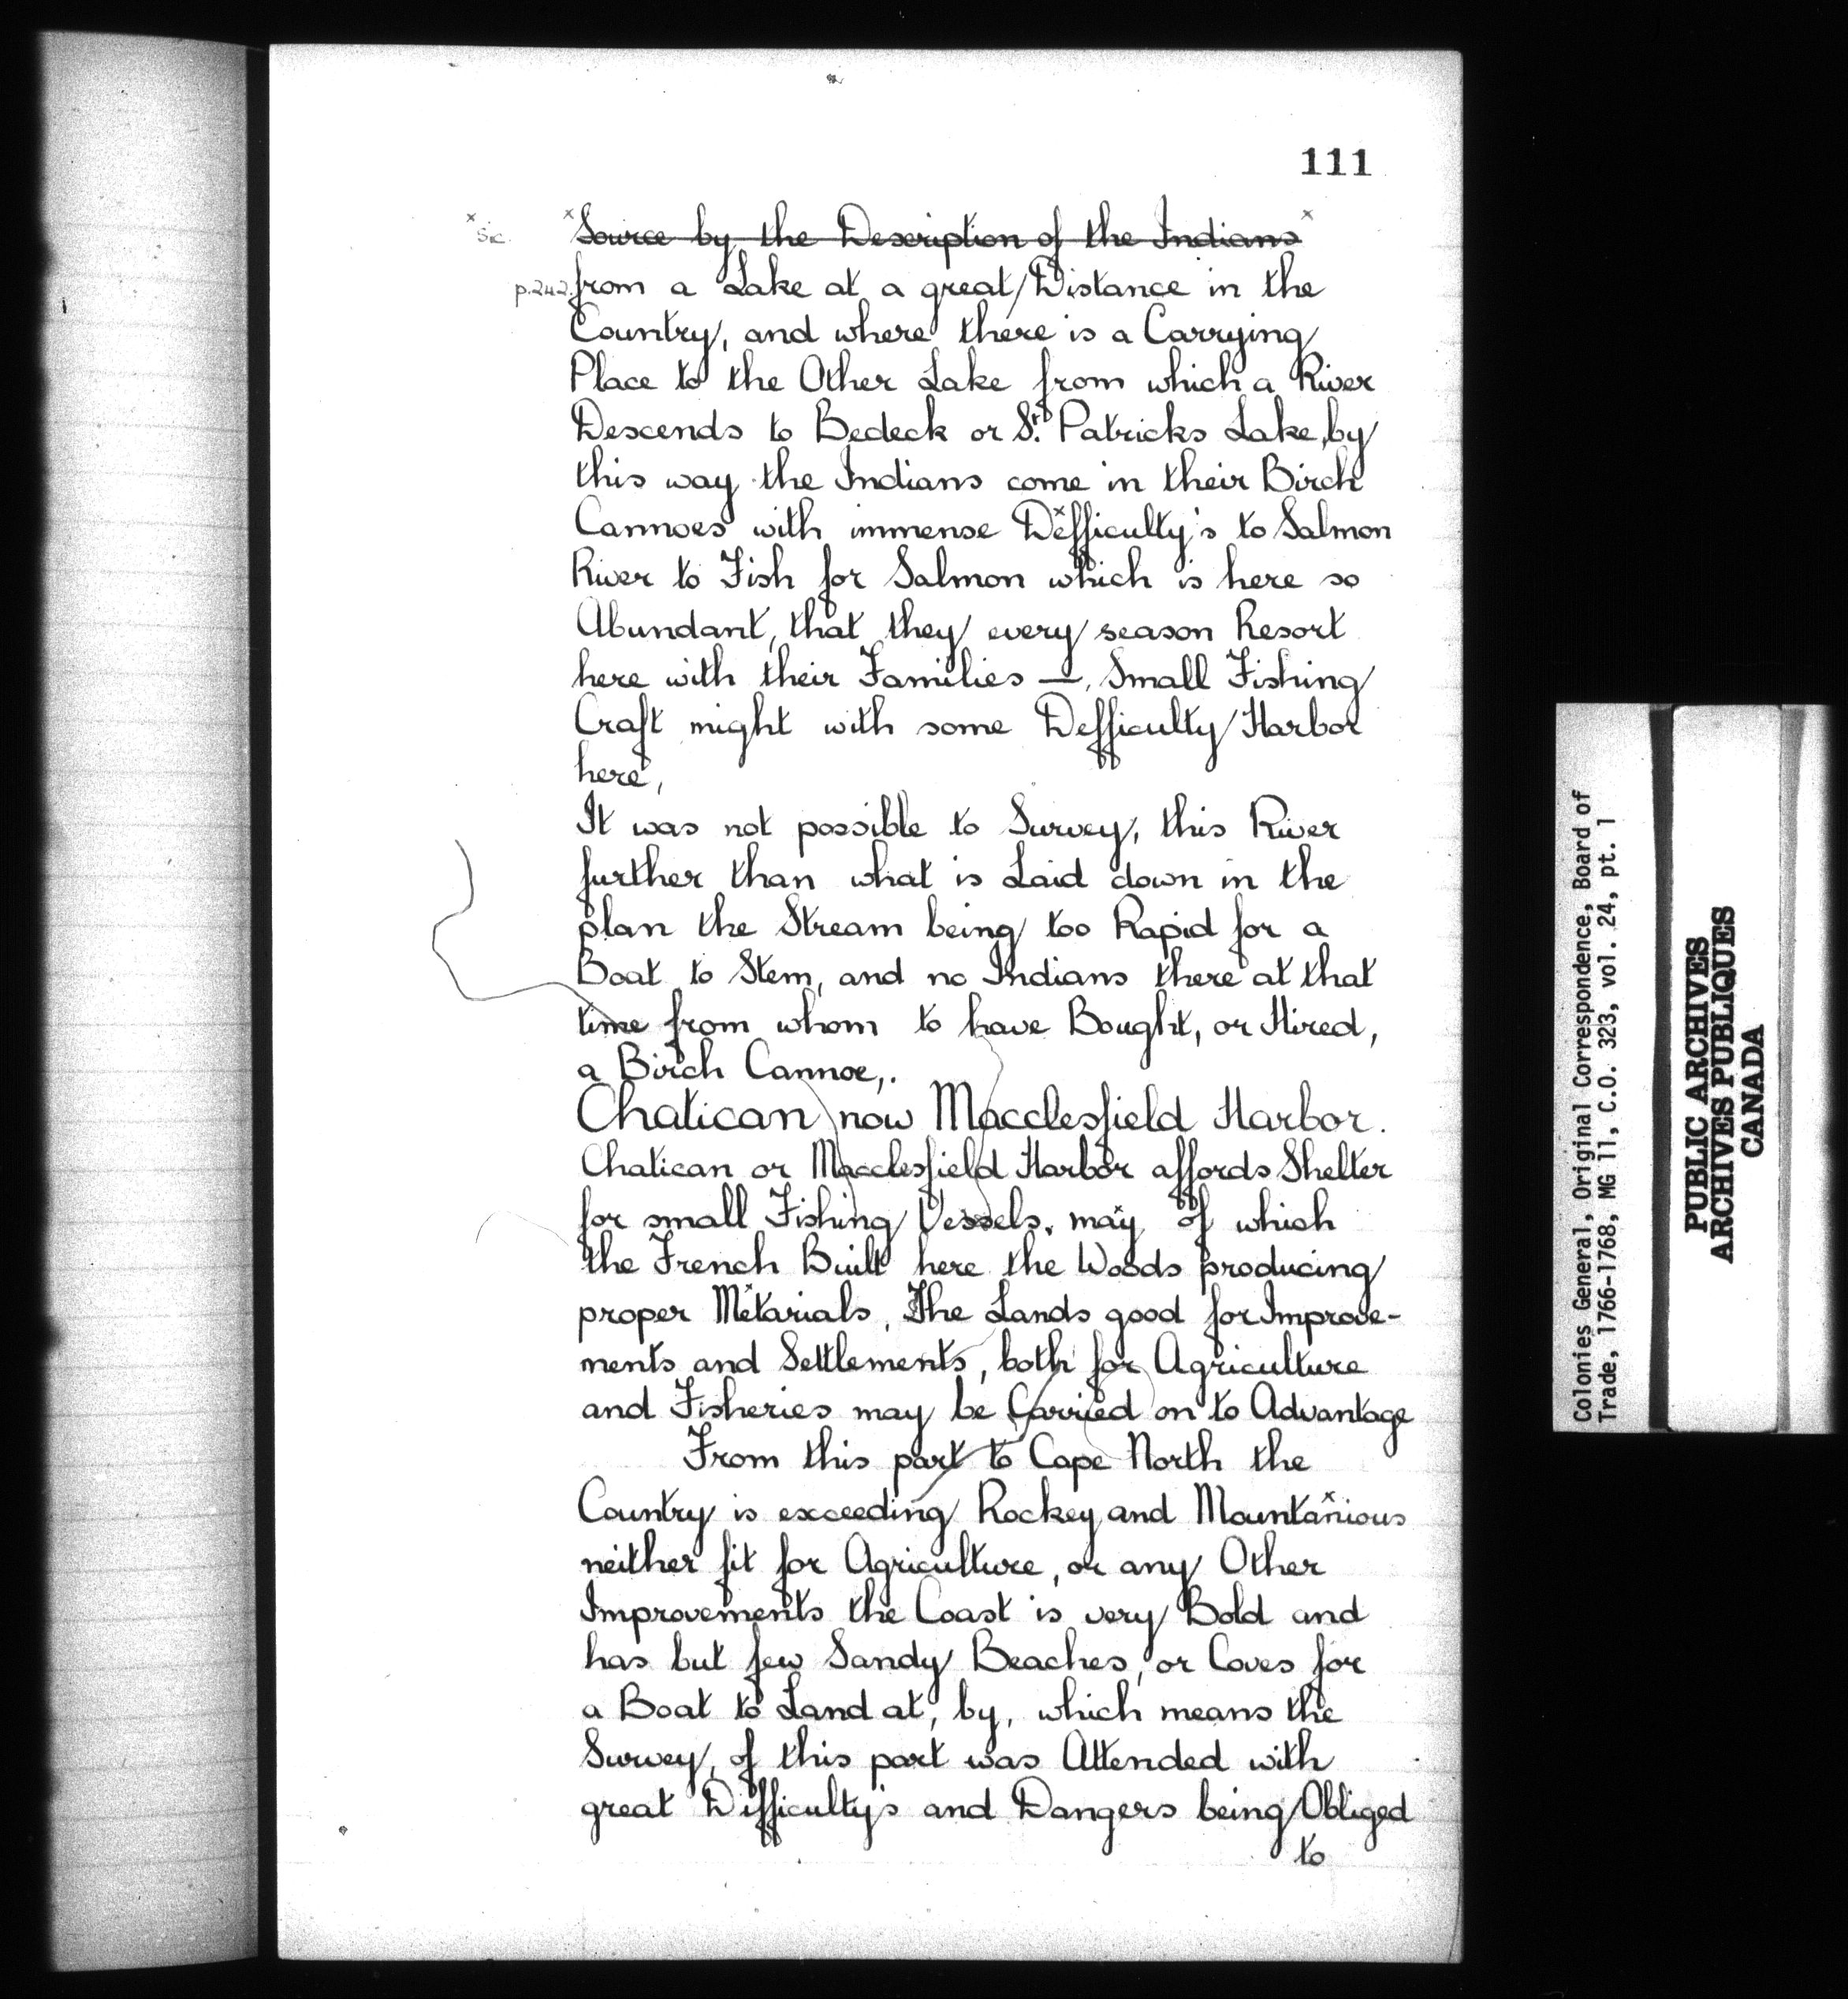 111
x sic. x Source by the Description of the Indians x
p.242. from a Lake at a great/Distance in the
Country, and where there is a Carrying
Place to the Other Lake from which a River
Descends to Bedeck or St. Patricks Lake, by
this way the Indians come in their Birch
Cannoes with immense Defficulty's to Salmon
River to Fish for Salmon which is here so
Abundant, that they every season Resort
here with their Families —, Small Fishing
Craft might with some Defficulty Harbor
here,
It was not possible to Survey, this River
further than what is Laid down in the
plan the Stream being too Rapid for a
Boat to Stem, and no Indians there at that
time from whom to have Bought, or Hired,
a Birch Cannoe,.
Chatican now Macclesfield Harbor.
Chatican or Macclesfield Harbor affords Shelter
for small Fishing Vessels, may of which
the French Built here the Woods producing
proper Metarials, The Lands good for Improve-
ments and Settlements, both for Agriculture
and Fisheries may be Carried on to Advantage
From this part to Cape North the
Country is exceeding Rockey and Mountanious
neither fit for Agriculture, or any Other
Improvements the Coast is very Bold and
has but few Sandy Beaches, or Coves for
a Boat to Land at, by, which means the
Survey, of this part was Attended with
great Difficulty's and Dangers being Obliged
to
Colonies General, Original Correspondence, Board of
Trade, 1766-1768, MG 11, C.O. 323, vol. 24, pt. 1
PUBLIC ARCHIVES
ARCHIVES PUBLIQUES
CANADA